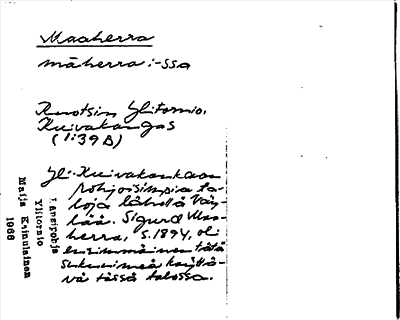 Maaherra
māherra :-ssa
Ruotsin Ylitornio.
Kuivakangas
(1:39 B)
Yl. Kuivakankaan
pohjoisimpia ta-
loja lähellä Väy-
lää. Sigurd Maa-
herra, s. 1894, oli
ensimmäinen tätä
sukunimeä käyttä-
vä tässä talossa.
Länsipohja
Ylitornio
Maija Kainulainen
1966